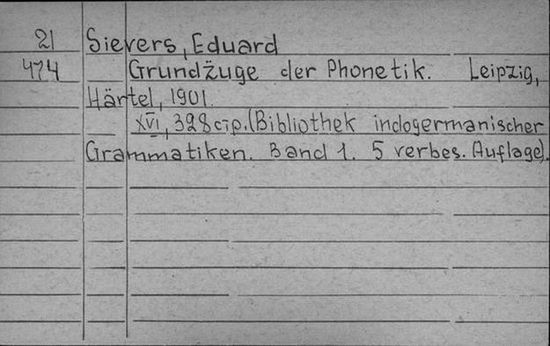 21 Sievers, Eduard
474 Grundzuge der Phonetik. Leipzig,
Härtel, 1901.
XVI, 328 стр. (Bibliothek indogermanischer
Grammatiken. Band 1. 5 verbes. Auflage).